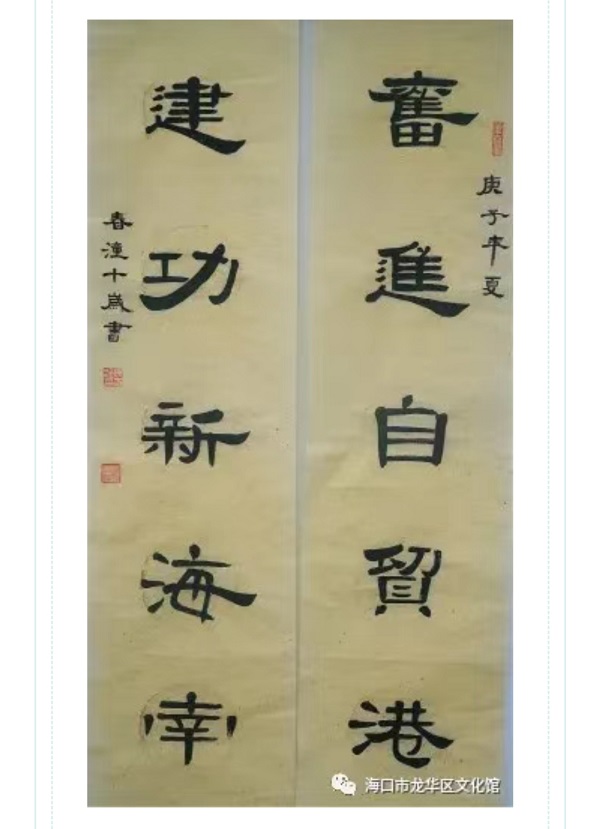 奮進自貿港
庚子年夏
建功新海南
春潼十歲書
海口市龙华区文化馆